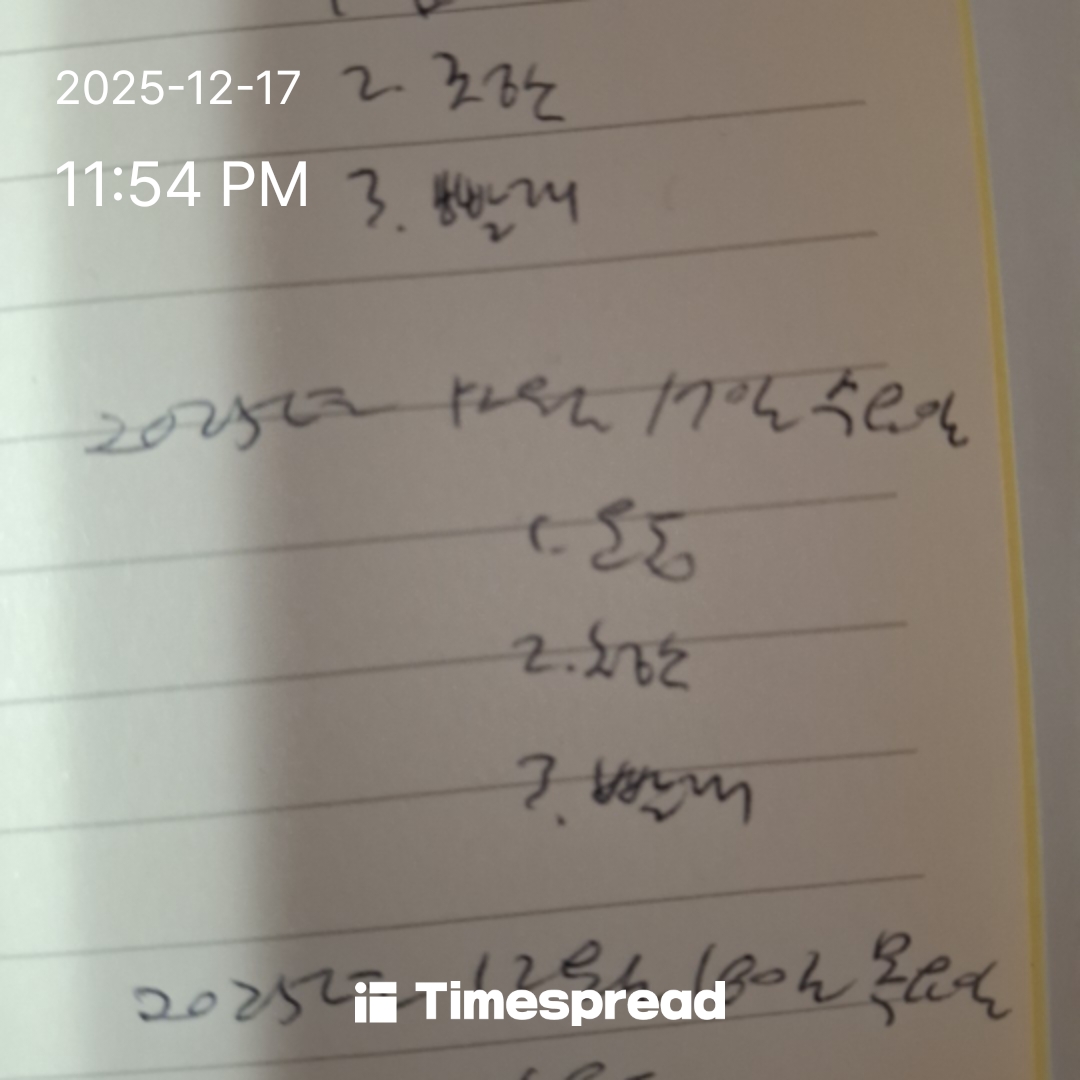 2025-12-17
11:54 PM
2. 출장
3. 빨래
2025년 12월 17일 수요일
1. 운동
2. 출장
3. 빨래
2025년 12월 18일 목요일
Timespread